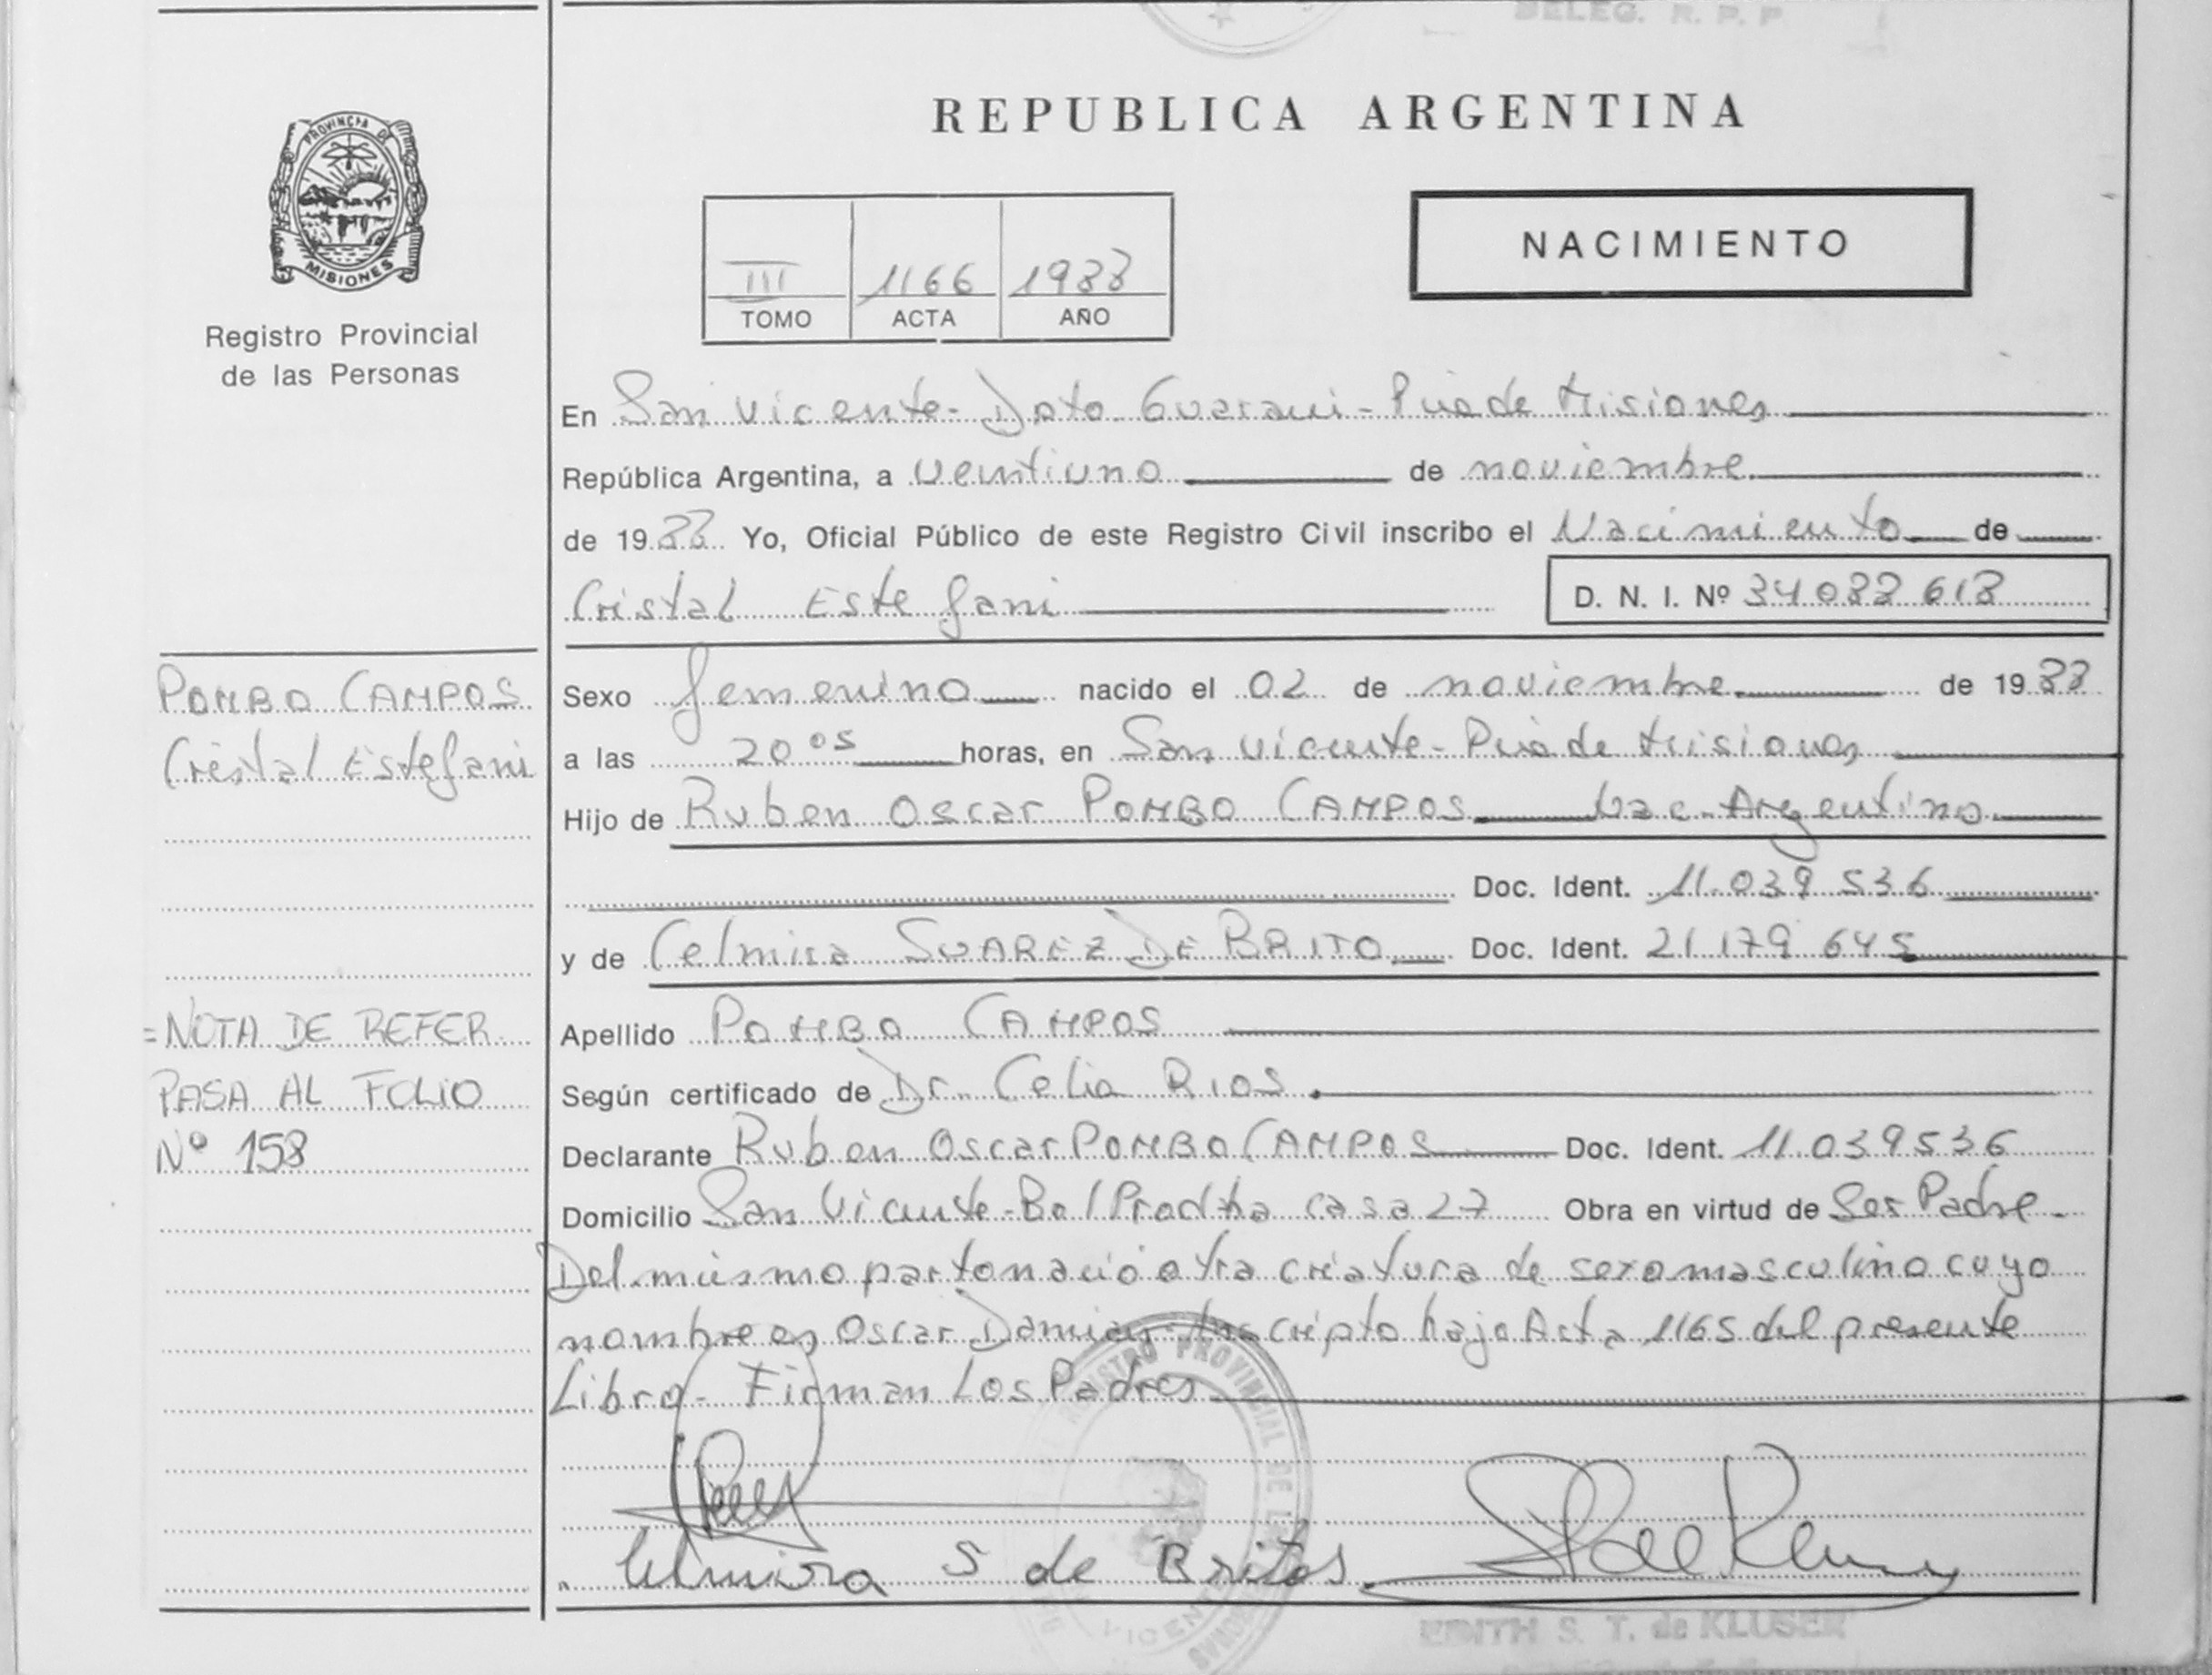 DELEG. R. P. P.
REPUBLICA ARGENTINA
PROVINCIA DE
MISIONES
Registro Provincial
de las Personas
NACIMIENTO
III 1166 1988
TOMO ACTA AÑO
En San Vicente - Dpto Guarani - Pcia de Misiones
República Argentina, a veintiuno de noviembre
de 1988 Yo, Oficial Público de este Registro Civil inscribo el Nacimiento de
Cristal Estefani D. N. I. Nº 34 088 618
POMBO CAMPOS
Cristal Estefani
Sexo femenino nacido el 02 de noviembre de 1988
a las 20 05 horas, en San Vicente - Pcia de Misiones
Hijo de Ruben Oscar POMBO CAMPOS Nac. Argentino
Doc. Ident. 11.039 536
y de Celmira SUAREZ DE BRITO Doc. Ident. 21 179 645
=NOTA DE REFER
PASA AL FOLIO
Nº 158
Apellido POMBO CAMPOS
Según certificado de Dr. Celia RIOS
Declarante Ruben Oscar POMBO CAMPOS Doc. Ident. 11.039536
Domicilio San Vicente - Bo / casa 27 Obra en virtud de Ser Padre -
Del mismo parto nació otra criatura de sexo masculino cuyo
nombre es Oscar Damian - Inscripto bajo Acta 1165 del presente
Libro - Firman Los Padres
REGISTRO PROVINCIAL DE
Celmira S de Britos
EDITH S. T. de KLUSER